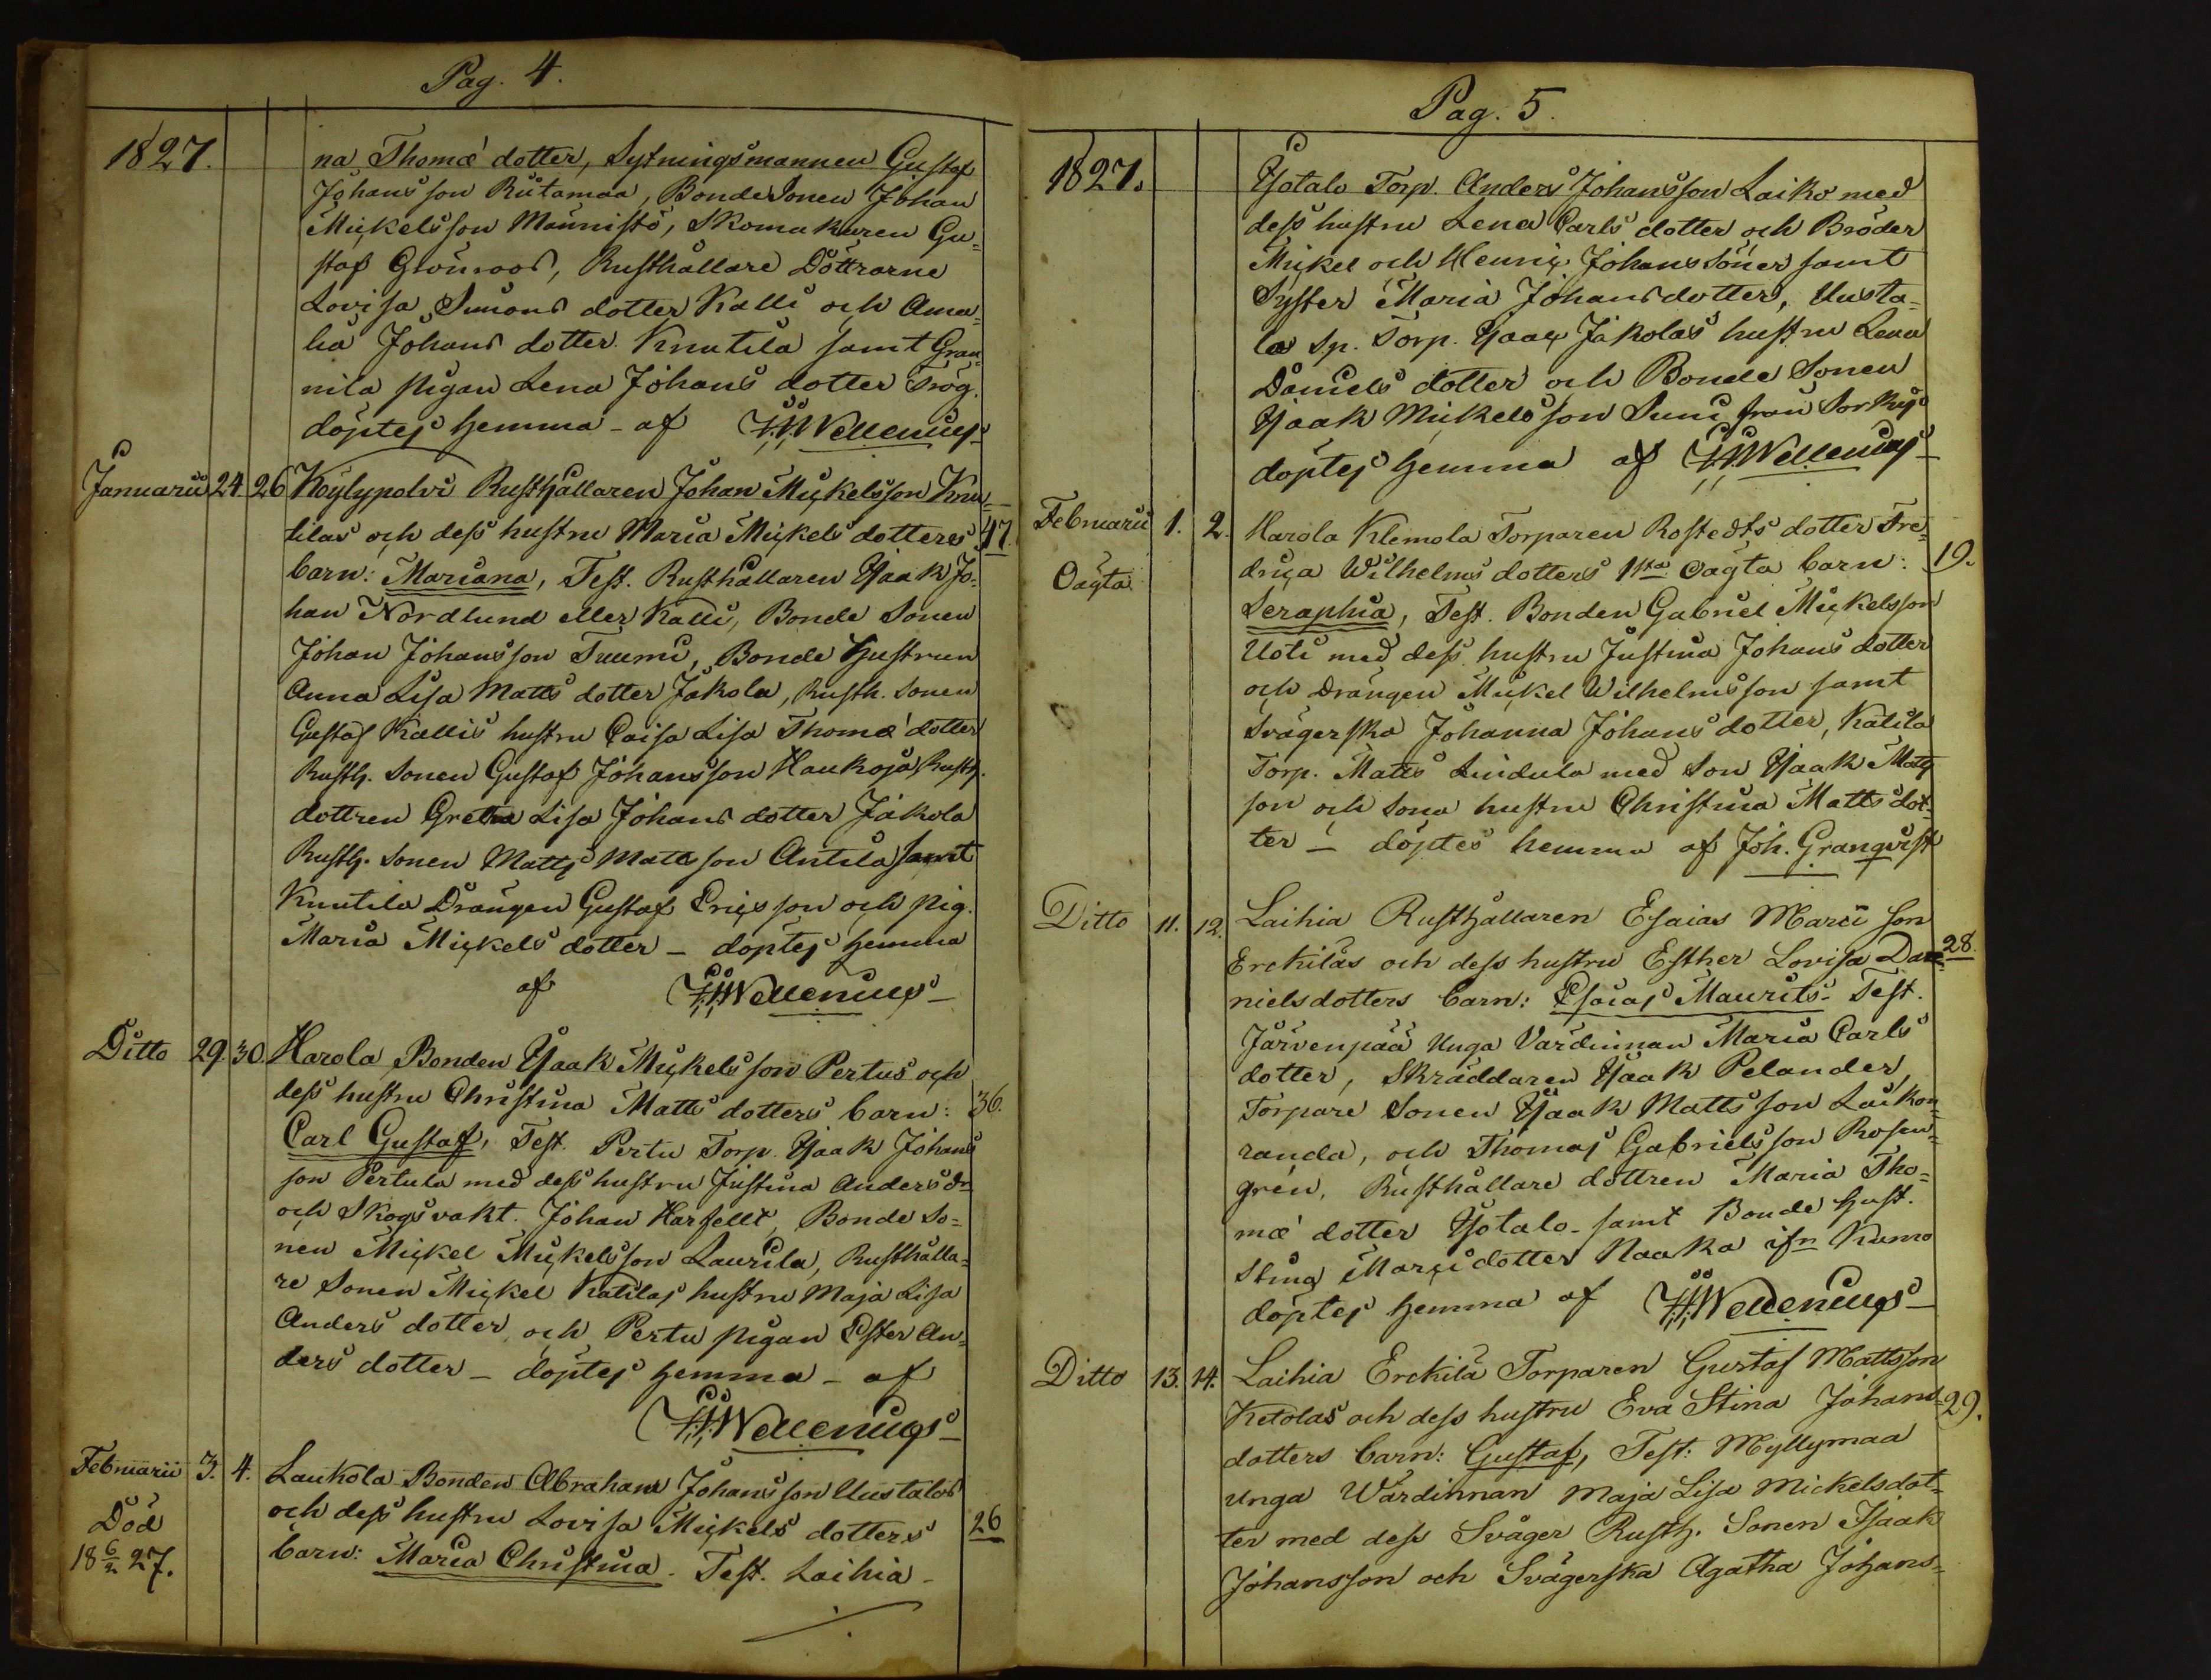 Pag. 4.
1827.
na Thomæ dotter, Sytningsmannen Gustaf
Johansson Riutamaa, Bonde Sonen Johan
Mickelsson Männistö, Skomakaren Gu-
staf Grönroos, Rusthållare Döttrarne
Lovisa Simons dotter Kalli och Ama-
lia Johans dotter Knutila samt Gran-
nila pigan Lena Johans dotter Trög.
döptes hemma - af H.H. Wellenius
Januarii 24 26 Köylypolvi Rusthållaren Johan Mickelsson Knu-
tilas och dess hustru Maria Mickels dotters 47.
barn: Mariana, Test. Rusthållaren Isaak Jo-
han Nordlund eller Kalli, Bonde Sonen
Johan Johansson Tuumi, Bonde Hustrun
Anna Lisa Matts dotter Jakola, Rusth. Sonen
Gustaf Kallis hustru Caisa Lisa Thomæ dotter
Rusth. Sonen Gustaf Johansson Haukoja Rusth.
dottren Greta Lisa Johans dotter Jakola
Rusth. Sonen Matts Mattsson Antila samt
Knutila Drängen Gustaf Ericsson och pig.
Maria Mickels dotter - döptes hemma
af H.H. Wellenius
Ditto 29. 30. Harola Bonden Isaak Mickelsson Pertus och
dess hustru Christina Matts dotters barn: 36.
Carl Gustaf, Test. Pertu Torp. Isaak Johans
son Pertula med dess hustru Justina Andersdr
och Skogsvakt. Johan Harfellt, Bonde So-
nen Mickel Mickelsson Laurila, Rusthålla-
re Sonen Mickel Katilas hustru Maja Lisa
Anders dotter och Pertu pigan Ester An-
ders dotter - döptes hemma - af
H.H. Wellenius
Februarii 3. 4. Laukola Bonden Abraham Johansson Uustalos
och dess hustru Lovisa Mickels dotters 26
barn: Maria Christina. Test. Laihia
Död
18 6/2 27.
Pag. 5.
1827.
Isotalo Torp. Anders Johansson Laiko med
dess hustru Lena Carls dotter och Bröder
Mickel och Henric Johans Söner samt
Syster Maria Johansdotter, Uusta-
lo Sp. Torp. Isaac Jakolas hustru Lena
Daniels dotter och Bonde Sonen
Isaak Mickelsson Suni från Sorkis
döptes hemma af H.H. Wellenius
Februarii 1. 2. Harola Klemola Torparen Rostedts dotter Fre-
Oägta
drica Wilhelms dotters 1sta oägta barn: 19.
Seraphia, Test. Bonden Gabriel Mickelsson
Uoti med dess hustru Justina Johans dotter
och Drängen Mickel Wilhelmsson samt
Svägerska Johanna Johans dotter, Katila
Torp. Matts Lindula med Son Isaak Matts
son och Sona hustru Christina Matts dot-
ter - döptes hemma af Joh. Granqvist
Ditto 11. 12. Laihia Rusthållaren Esaias Marci son
Erckiläs och dess hustru Esther Lovisa Da- 28.
nielsdotters barn: Esaias Maurits. Test.
Järvenpää Unga Värdinnan Maria Carls
dotter, Skräddaren Isaak Pelander,
Torpare Sonen Isaak Mattsson Laikon-
randa, och Thomas Gabrielsson Rosen-
gren, Rusthållare dottren Maria Tho-
mæ dotter Isotalo - samt Bonde Hust.
Stina Marci dotter Naaka ifr. Kumo
döptes hemma af H.H. Wellenius
Ditto 13. 14. Laihia Erckilä Torparen Gustaf Mattsson
Ketolas och dess hustru Eva Stina Johans- 29.
dotters barn: Gustaf, Test: Myllymaa
unga Wärdinnan Maja Lisa Mickelsdot-
ter med dess Svåger Rusth. Sonen Isaak
Johansson och Svägerska Agatha Johans-